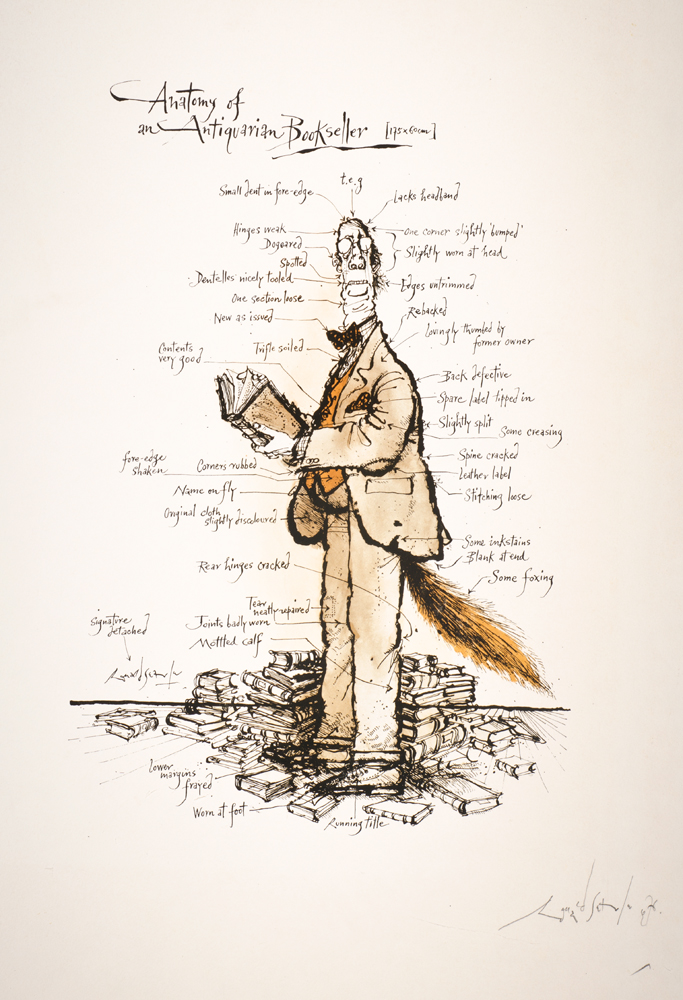 Anatomy of
an Antiquarian Bookseller [175x60cm]
t.e.g
Small dent in fore-edge
Lacks headband
Hinges weak
One corner slightly 'bumped'
Dogeared
Slightly worn at head
Spotted
Dentelles nicely tooled
Edges untrimmed
One section loose
Rebacked
New as issued
Lovingly thumbed by
former owner
Contents
very good
Trifle soiled
Back defective
Spare label tipped in
Slightly split
Some creasing
fore-edge
shaken
Corners rubbed
Spine cracked
Leather label
Name on fly
Stitching loose
Original cloth
slightly discoloured
Some inkstains
Blank at end
Rear hinges cracked
Some foxing
Tear
neatly repaired
Signature
detached
Joints badly worn
Mottled calf
Ronald Searle
Lower
margins
frayed
Worn at foot
Running title
Ronald Searle